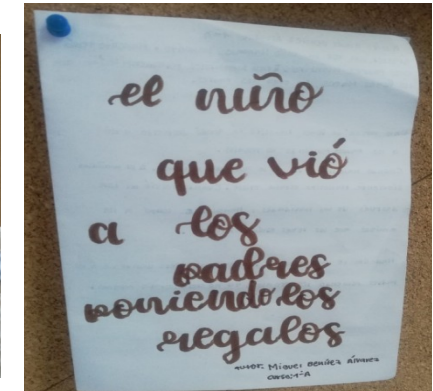 el niño
que vió
a los
padres
poniendo los
regalos
autor: Miguel Benítez Álvarez
curso: 1ºA